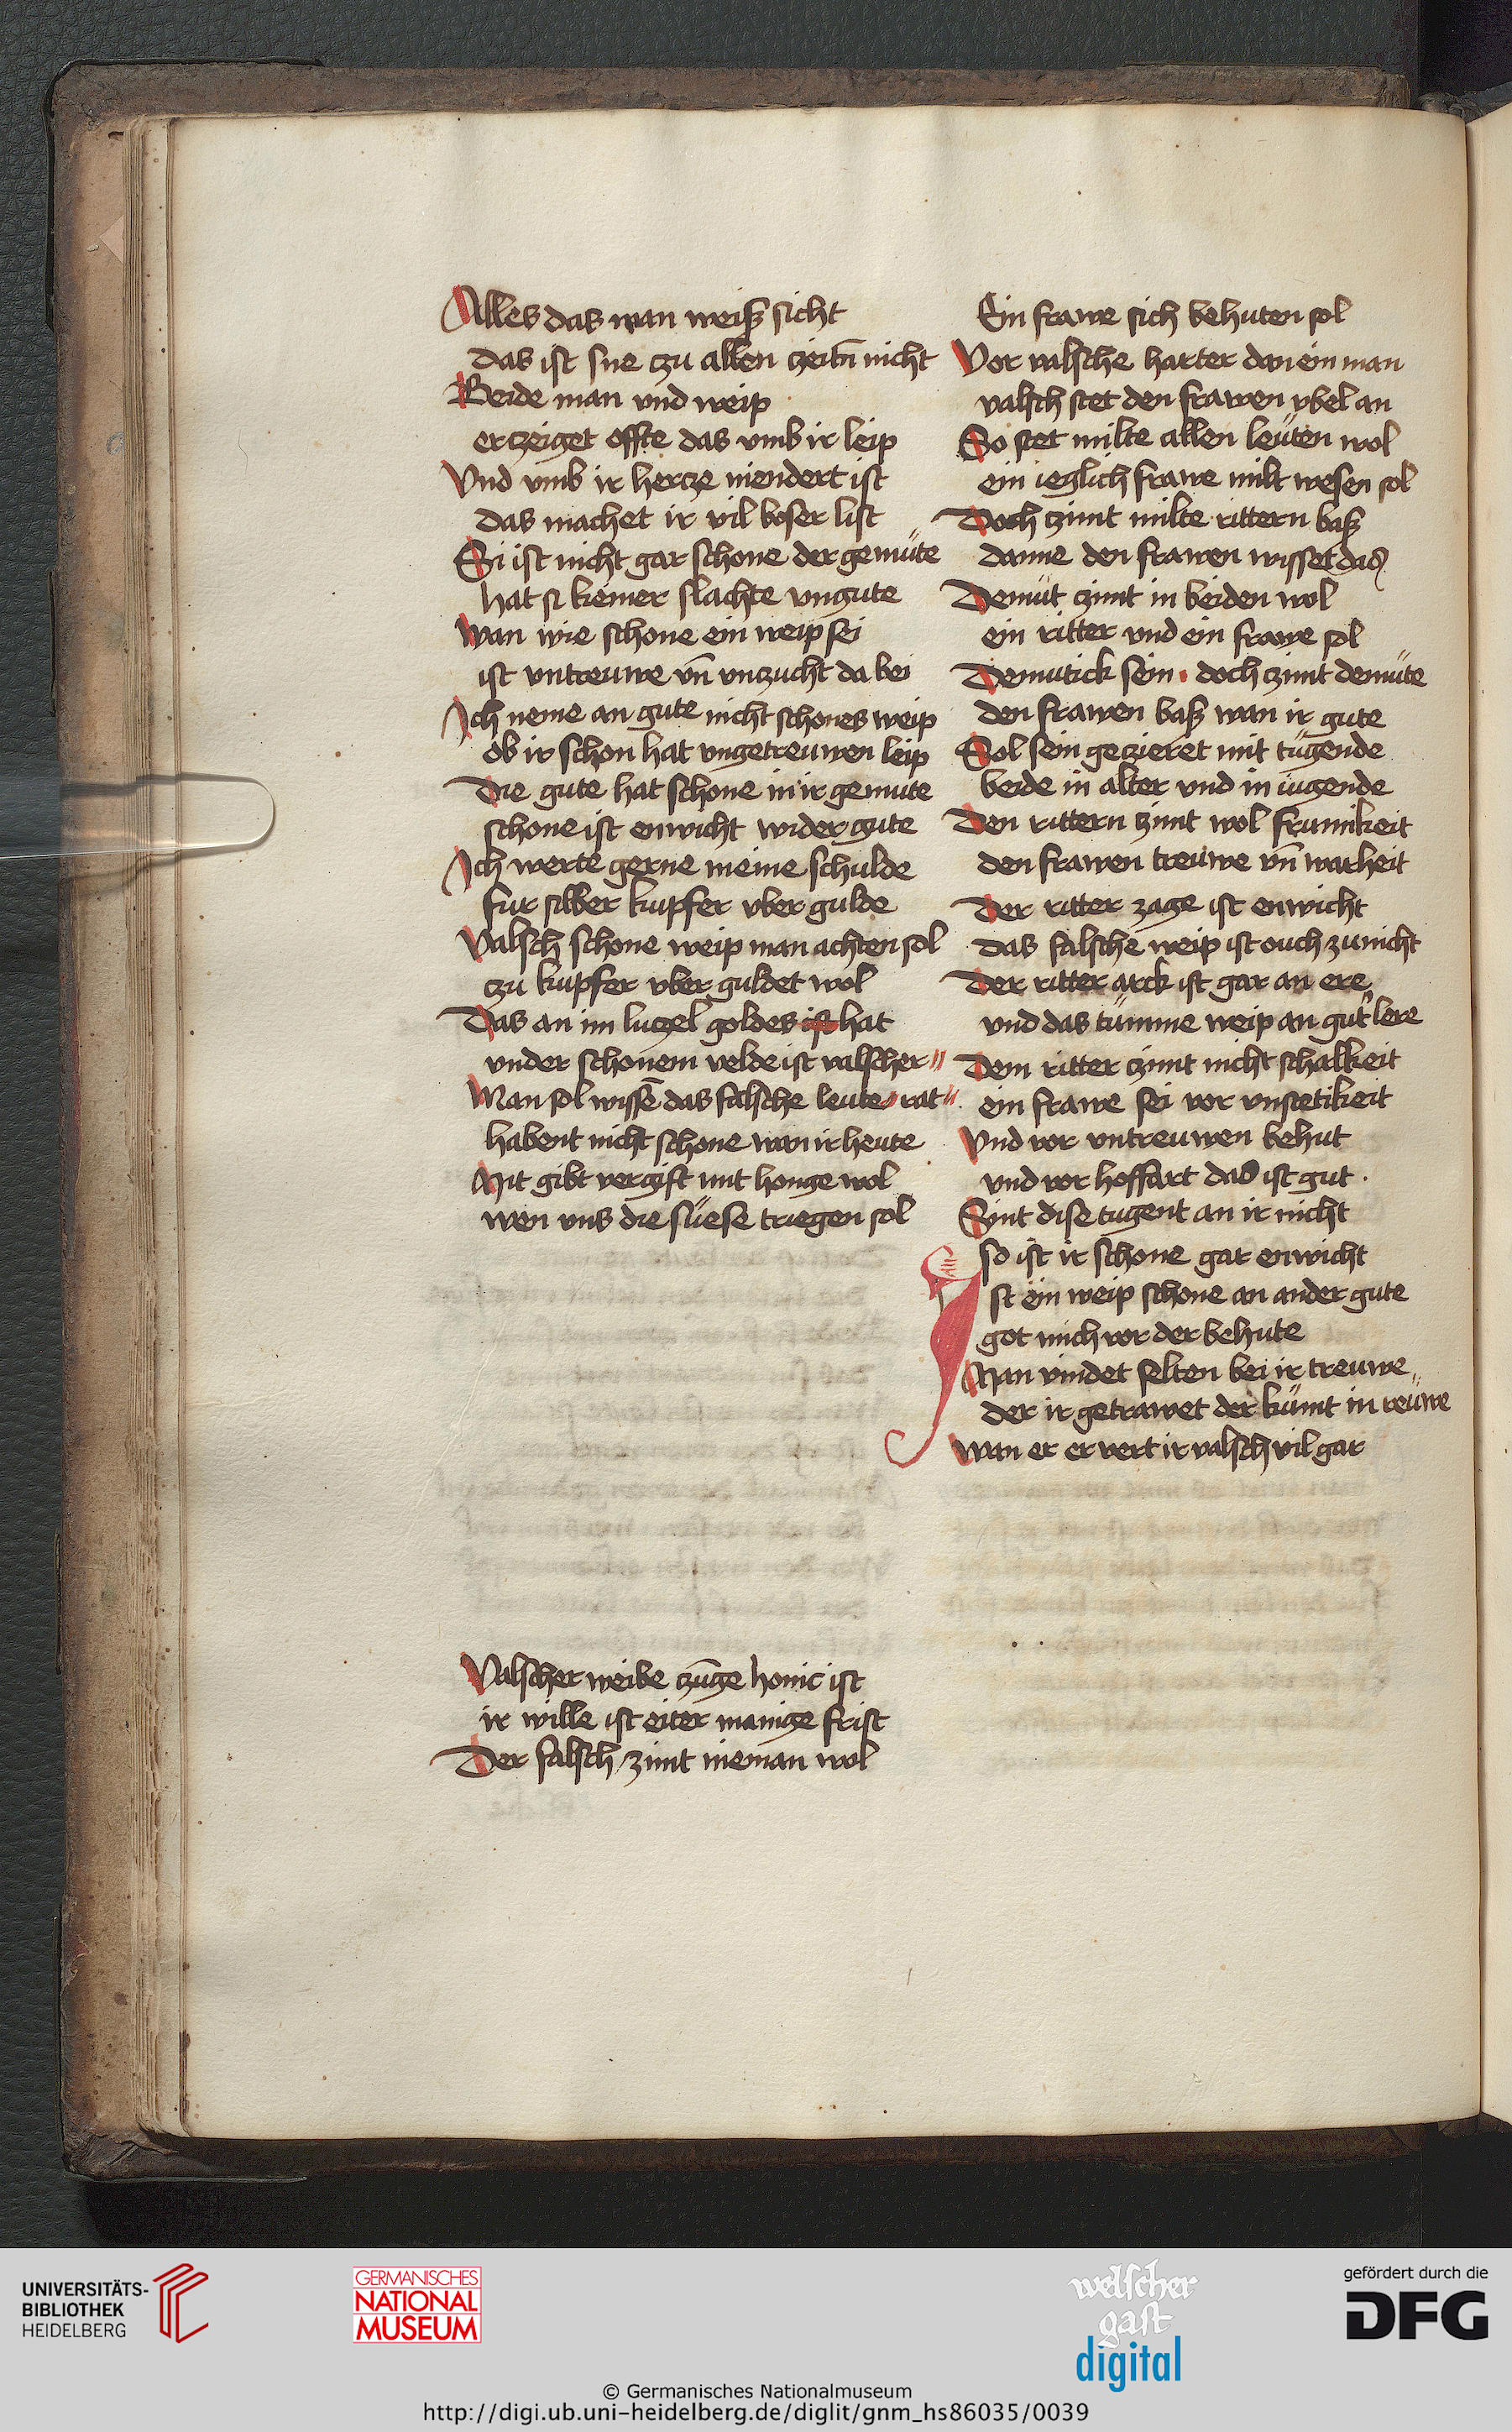 Alles das man weiß sicht
das ist sne czu allen czeitn̄ nicht
Beide man vnd weip
erczeiget offte das vmb ir leip
Vnd vmb ir hercze niendert ist
das machet ir vil boser list
Si ist nicht gar schone der gemüte
hat si keiner slachte vngute
wan wie schone ein weip sei
ist vntreuwe vn̄ vnzucht da bei
Ich neme an gute nicht schones weip
ob ir schon hat vngetreuwen leip
Die gute hat schone in ir gemute
schone ist enwicht wider gute
Ich werte gerne meine schulde
fur silber kupfer vber gulde
Valsch schone weip man achten sol
czu kupfer vber guldet wol
Das an im luczel goldes ist hat
vnder schonem velde ist valscher〃
Man sol wissē das falsche leute rat〃
habent nicht schone wan ir heute
Mit gibt vergift mit honge wol
wen vns die süese triegen sol
Valscher weibe czūge honic ist
ir wille ist eiter manige frist
Der falsch zimt nieman wol
Ein frawe sich behuten sol
Vor valsche harter dan ein man
valsch stet den frawen vbel an
So stet milte allen leüten wol
ein ieglich frawe milt wesen sol
Doch zimt milte rittern baß
danne den frawen wisset das
Demüt zimt in beiden wol
ein ritter vnd ein frawe sol
Demutick sein · doch zimt demüte
den frawen baß wan ir gute
Sol sein gezieret mit tügende
beide in alter vnd in iugende
Den rittern zimt wol frumikeit
den frawen treuwe vn̄ warheit
Der ritter zage ist enwicht
das falsche weip ist ouch zu nicht
Der ritter arck ist gar an ere
vnd das tümme weip an gut' lere
Dem ritter zimt nicht schalkeit
ein frawe sei vor vnstetikeit
Vnd vor vntreuwen behut
vnd vor hoffart das ist gut ·
Sint dise tugent an ir nicht
so ist ir schone gar enwicht
Ist ein weip schone an ander gute
got mich vor der behute
Man vindet selten bei ir treuwe
der ir getrawet der kümt in reüwe
wan er ervert ir valsch vil gar
UNIVERSITÄTS-
BIBLIOTHEK
HEIDELBERG
GERMANISCHES
NATIONAL
MUSEUM
welscher
gast
digital
gefördert durch die
DFG
© Germanisches Nationalmuseum
http://digi.ub.uni-heidelberg.de/diglit/gnm_hs86035/0039